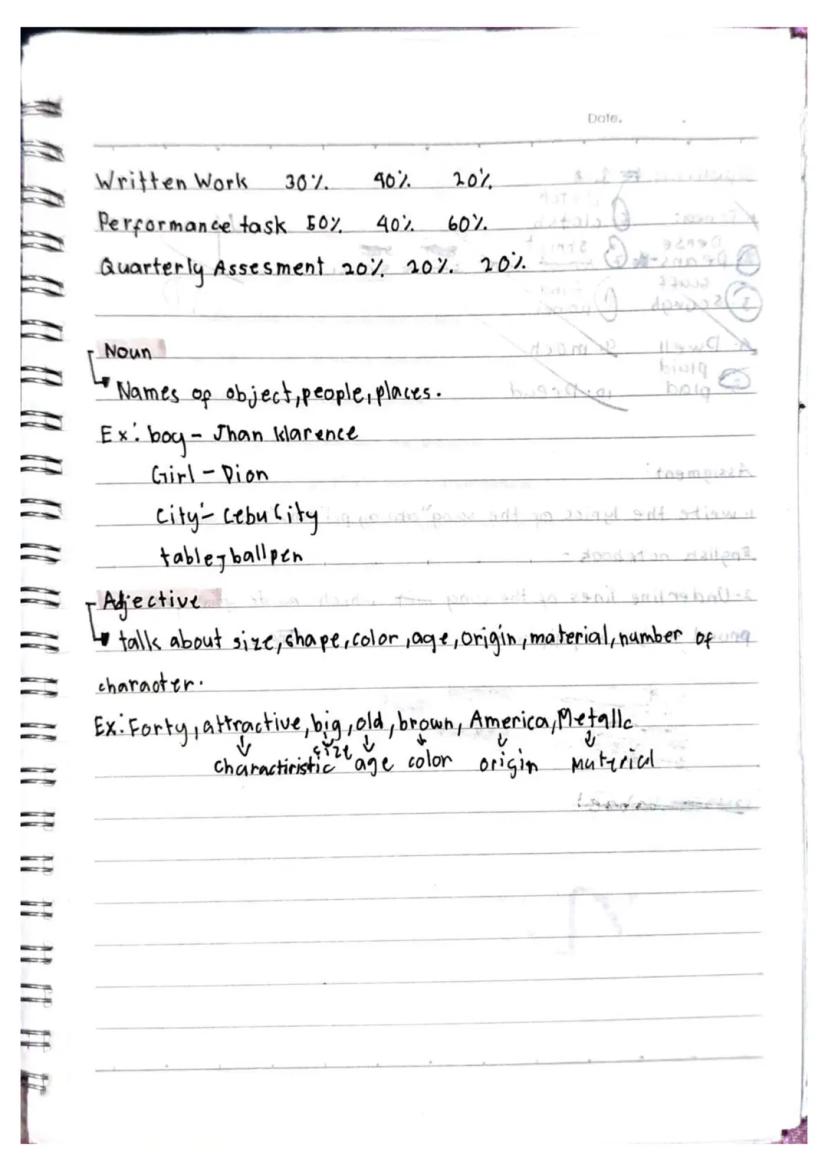 Date.
Written Work 30% 40% 20%
Performance task 50% 40% 60%
Quarterly Assesment 20% 20% 20%
Noun
Names of object, people, places.
Ex: boy - Jhan Klarence
Girl - Dion
City - Cebu City
table - ballpen
Adjective
talk about size, shape, color, age, origin, material, number of
character.
Ex: Forty, attractive, big, old, brown, America, Metallc
charactiristic size age color origin material